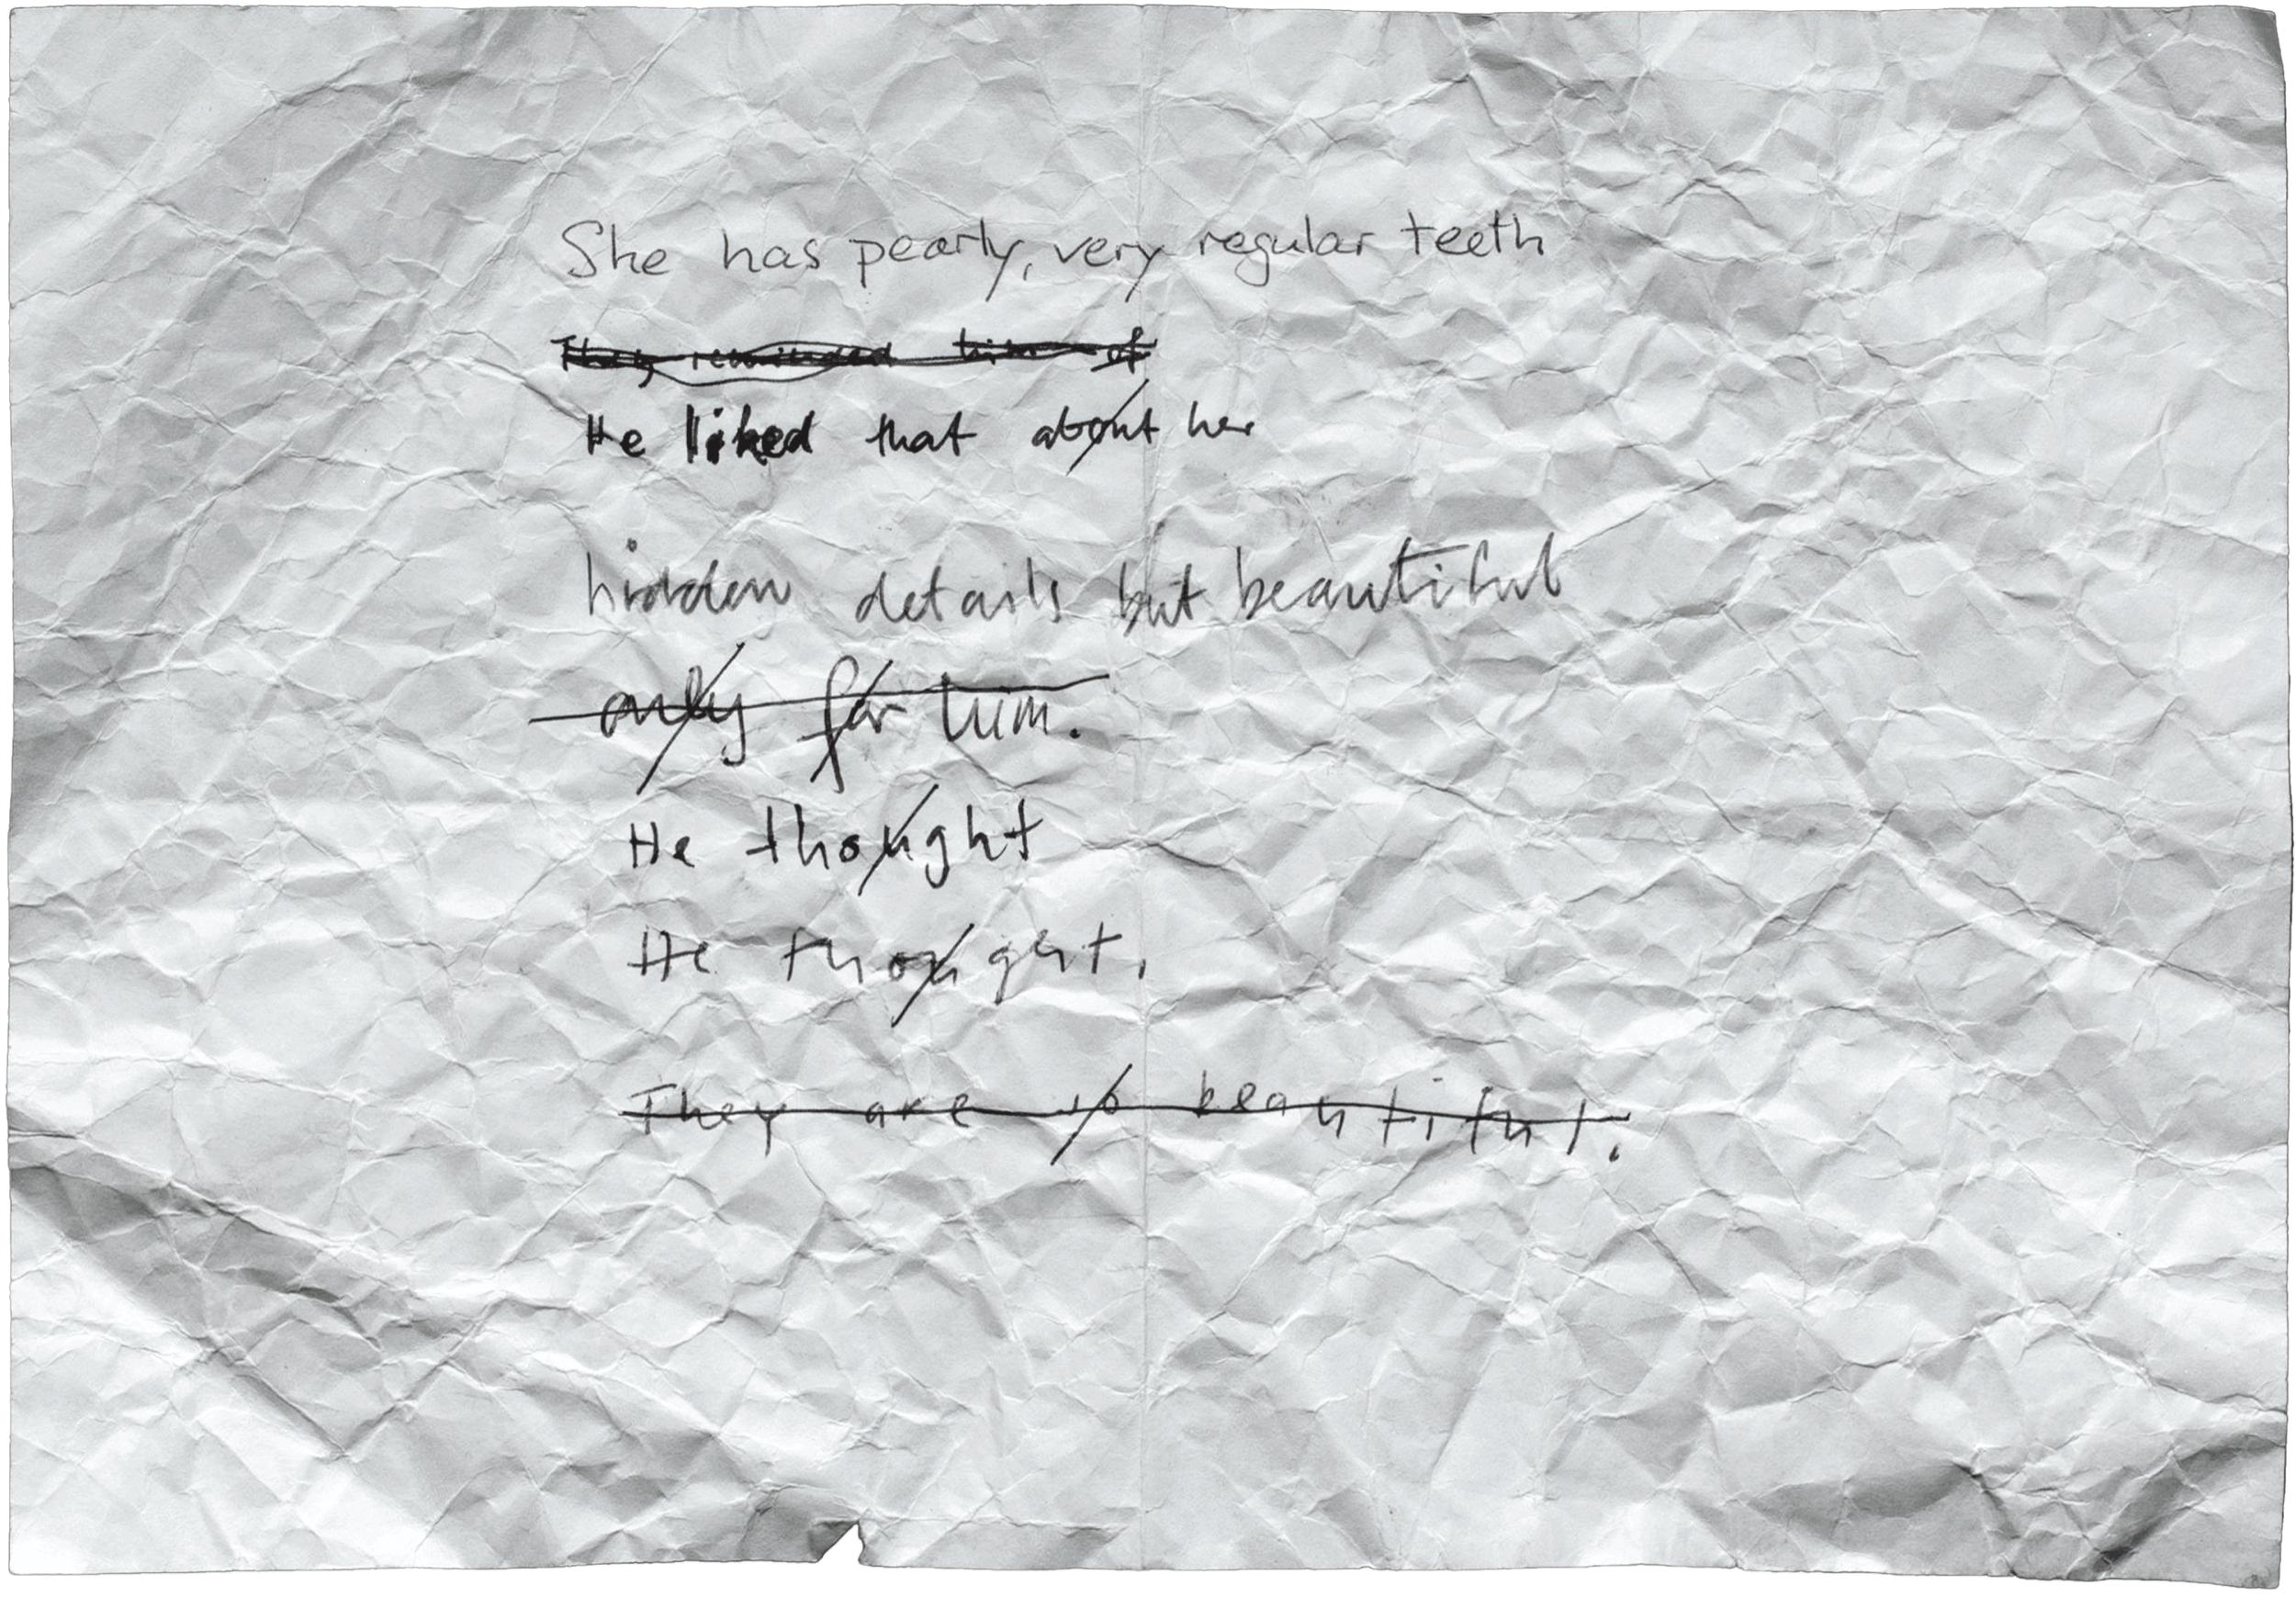 She has pearly, very regular teeth
They reminded him of
He liked that about her
hidden details but beautiful
only for him.
He thought
He thought,
They are so beautiful.